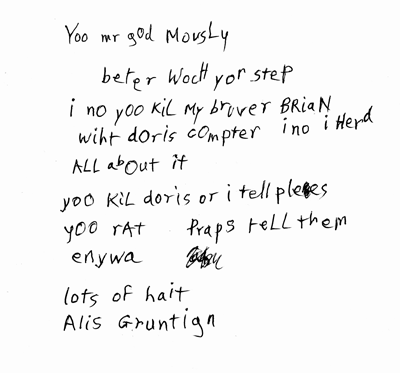 Yoo mr god MousLy
beter WocH yor step
i no yoo KiL My bruver BRiaN
wiht doris cOmpter i no i Herd
ALL abOut it
yoo KiL doris or i tell pleses
yOO rAt Praps tell them
enywa
lots of hait
Alis Gruntign